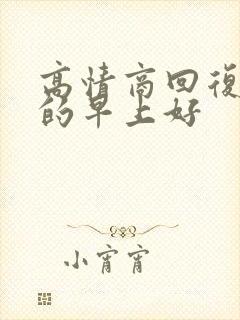 高情商回復
的早上好
小宵宵